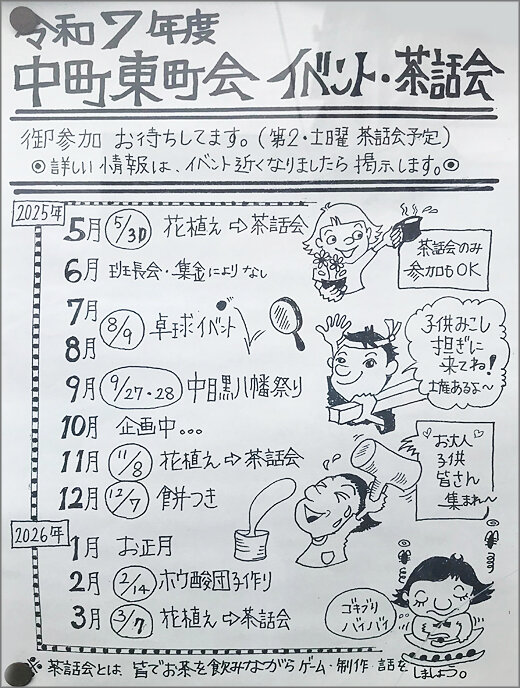 令和7年度
中町東町会 イベント・茶話会
御参加 お待ちしてます。(第2・土曜 茶話会予定)
◎詳しい情報は、イベント近くなりましたら掲示します。◎
2025年
5月 5/31 花植え⇨茶話会
茶話会のみ
参加もOK
6月 班長会・集金によりなし
7月
8/9 卓球イベント
8月
子供みこし
担ぎに
来てね!
土産あるよ〜
9月 9/27・28 中目黒八幡祭り
10月 企画中...
11月 11/8 花植え⇨茶話会
お大人
子供
皆さん
集まれ〜
12月 12/7 餅つき
2026年
1月 お正月
2月 2/14 ホウ酸団子作り
3月 3/7 花植え⇨茶話会
ゴキブリ
バイバイ
※ 茶話会とは、皆でお茶を飲みながらゲーム・制作・話をしましょう。